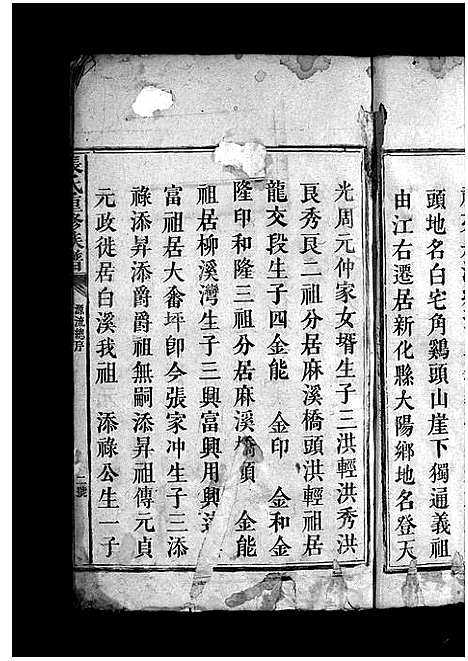 頭地名白宅角鷄頭山崖下獨通義祖
由江右遷居新化縣大陽鄉地名登天
光周元仲家女壻生子三洪輕洪秀洪
艮秀艮二祖分居麻溪橋頭洪輕祖居
龍交段生子四金能 金印 金和金
隆印和隆三祖分居麻溪 頭 金能
祖居柳溪灣生子三興富興用興
富祖居大畨坪卽今張家冲生子三添
祿添昇添爵爵祖無嗣添昇祖傳元貞
元政徙居白溪我祖 添祿公生一子
張氏重修族譜
源流總序
二號